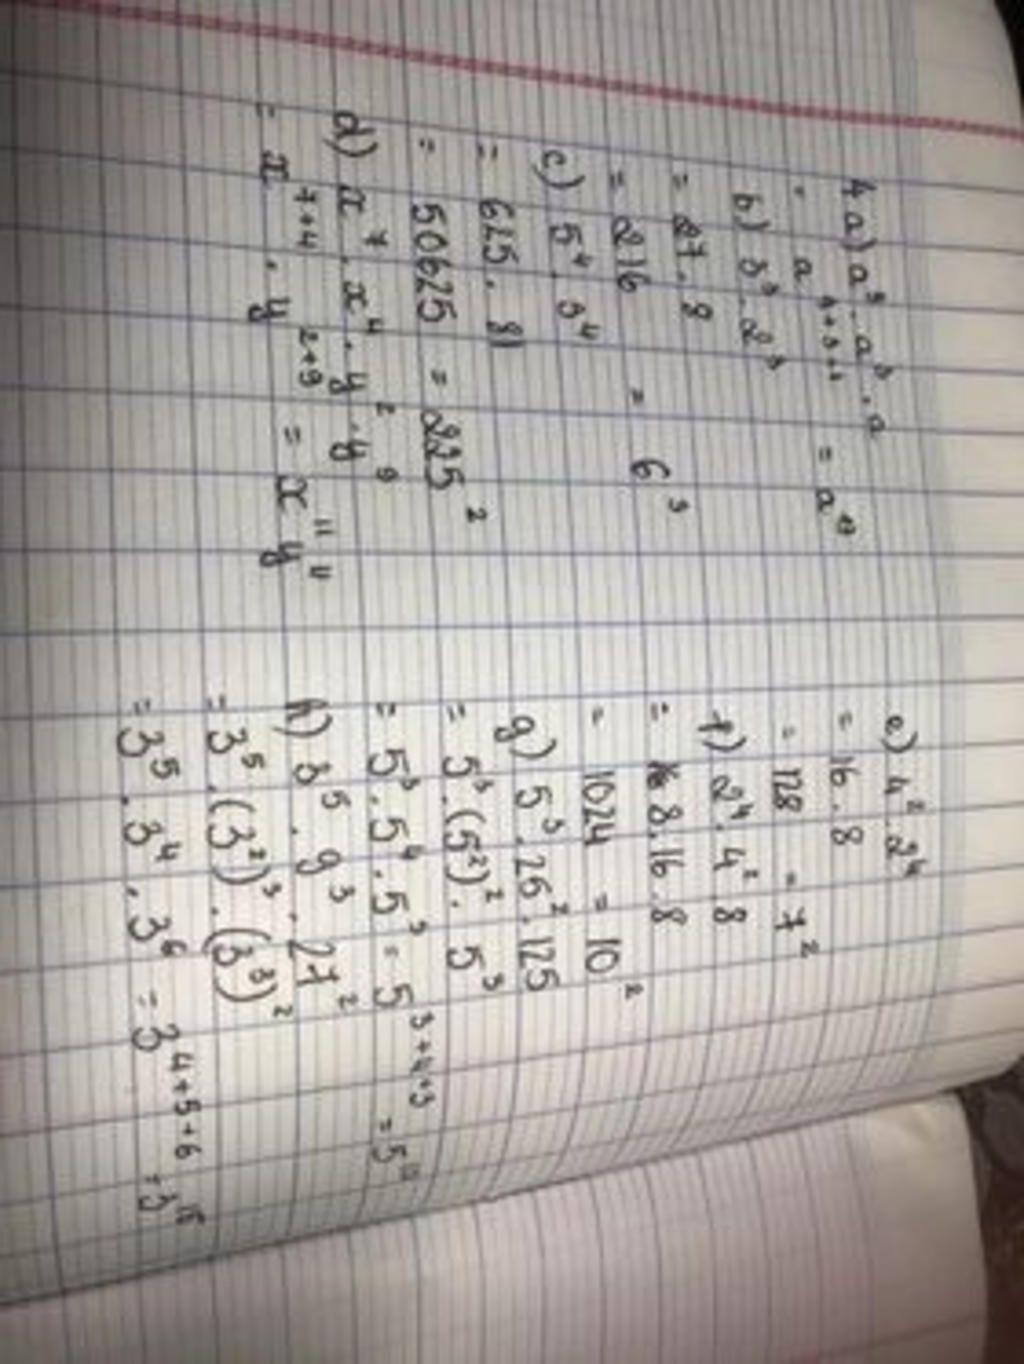 4 a) a⁹ . a³ . a
b) 3³ . 2³
= 27 . 8
= 216 = 6³
c) 5⁴ . 3⁴
= 625 . 81
= 50625 = 225²
d) x⁷ . x⁴ . y² . y⁹
= x⁷⁺⁴ . y²⁺⁹ = x¹¹ y¹¹
e) 4² . 2⁴
= 16 . 8
= 128 = 7²
f) 2⁴ . 4² . 8
= 8 . 16 . 8
= 1024 = 10²
g) 5³ . 25² . 125
= 5³ . (5²)² . 5³
= 5³ . 5⁴ . 5³ = 5³⁺⁴⁺³ = 5¹⁰
h) 3⁵ . 9³ . 27²
= 3⁵ . (3²)³ . (3³)²
= 3⁵ . 3⁴ . 3⁶ = 3⁴⁺⁵⁺⁶ = 3¹⁵